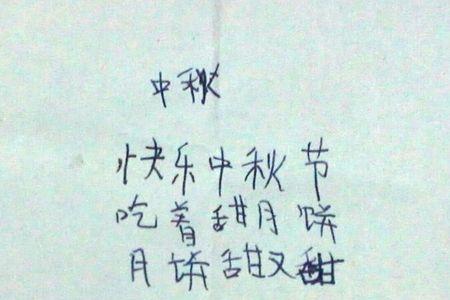 中秋
快乐中秋节
吃着甜月饼
月饼甜又甜